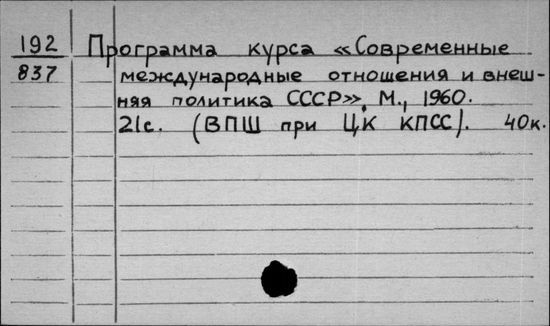 192 Программа курса «Современные
837 международные отношения и внеш-
няя политика СССР», М., 1960.
21с. (ВПШ при ЦК КПСС). 40к.